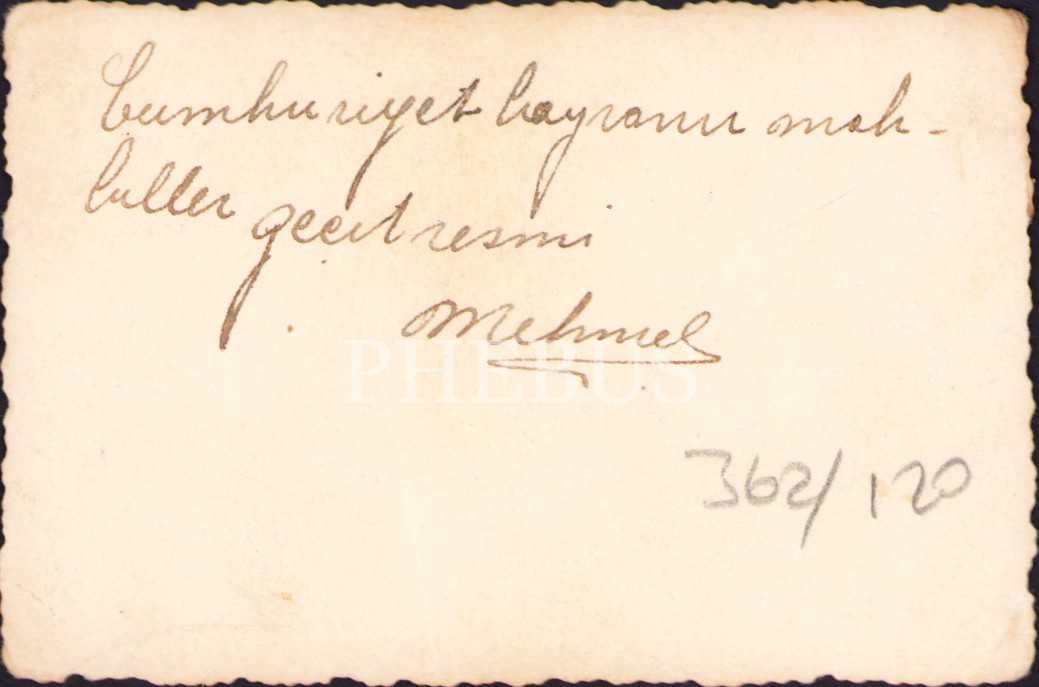 Cumhuriyet bayramı mek-
tuller geçit resmi
Mehmet
PHEBUS
362/120